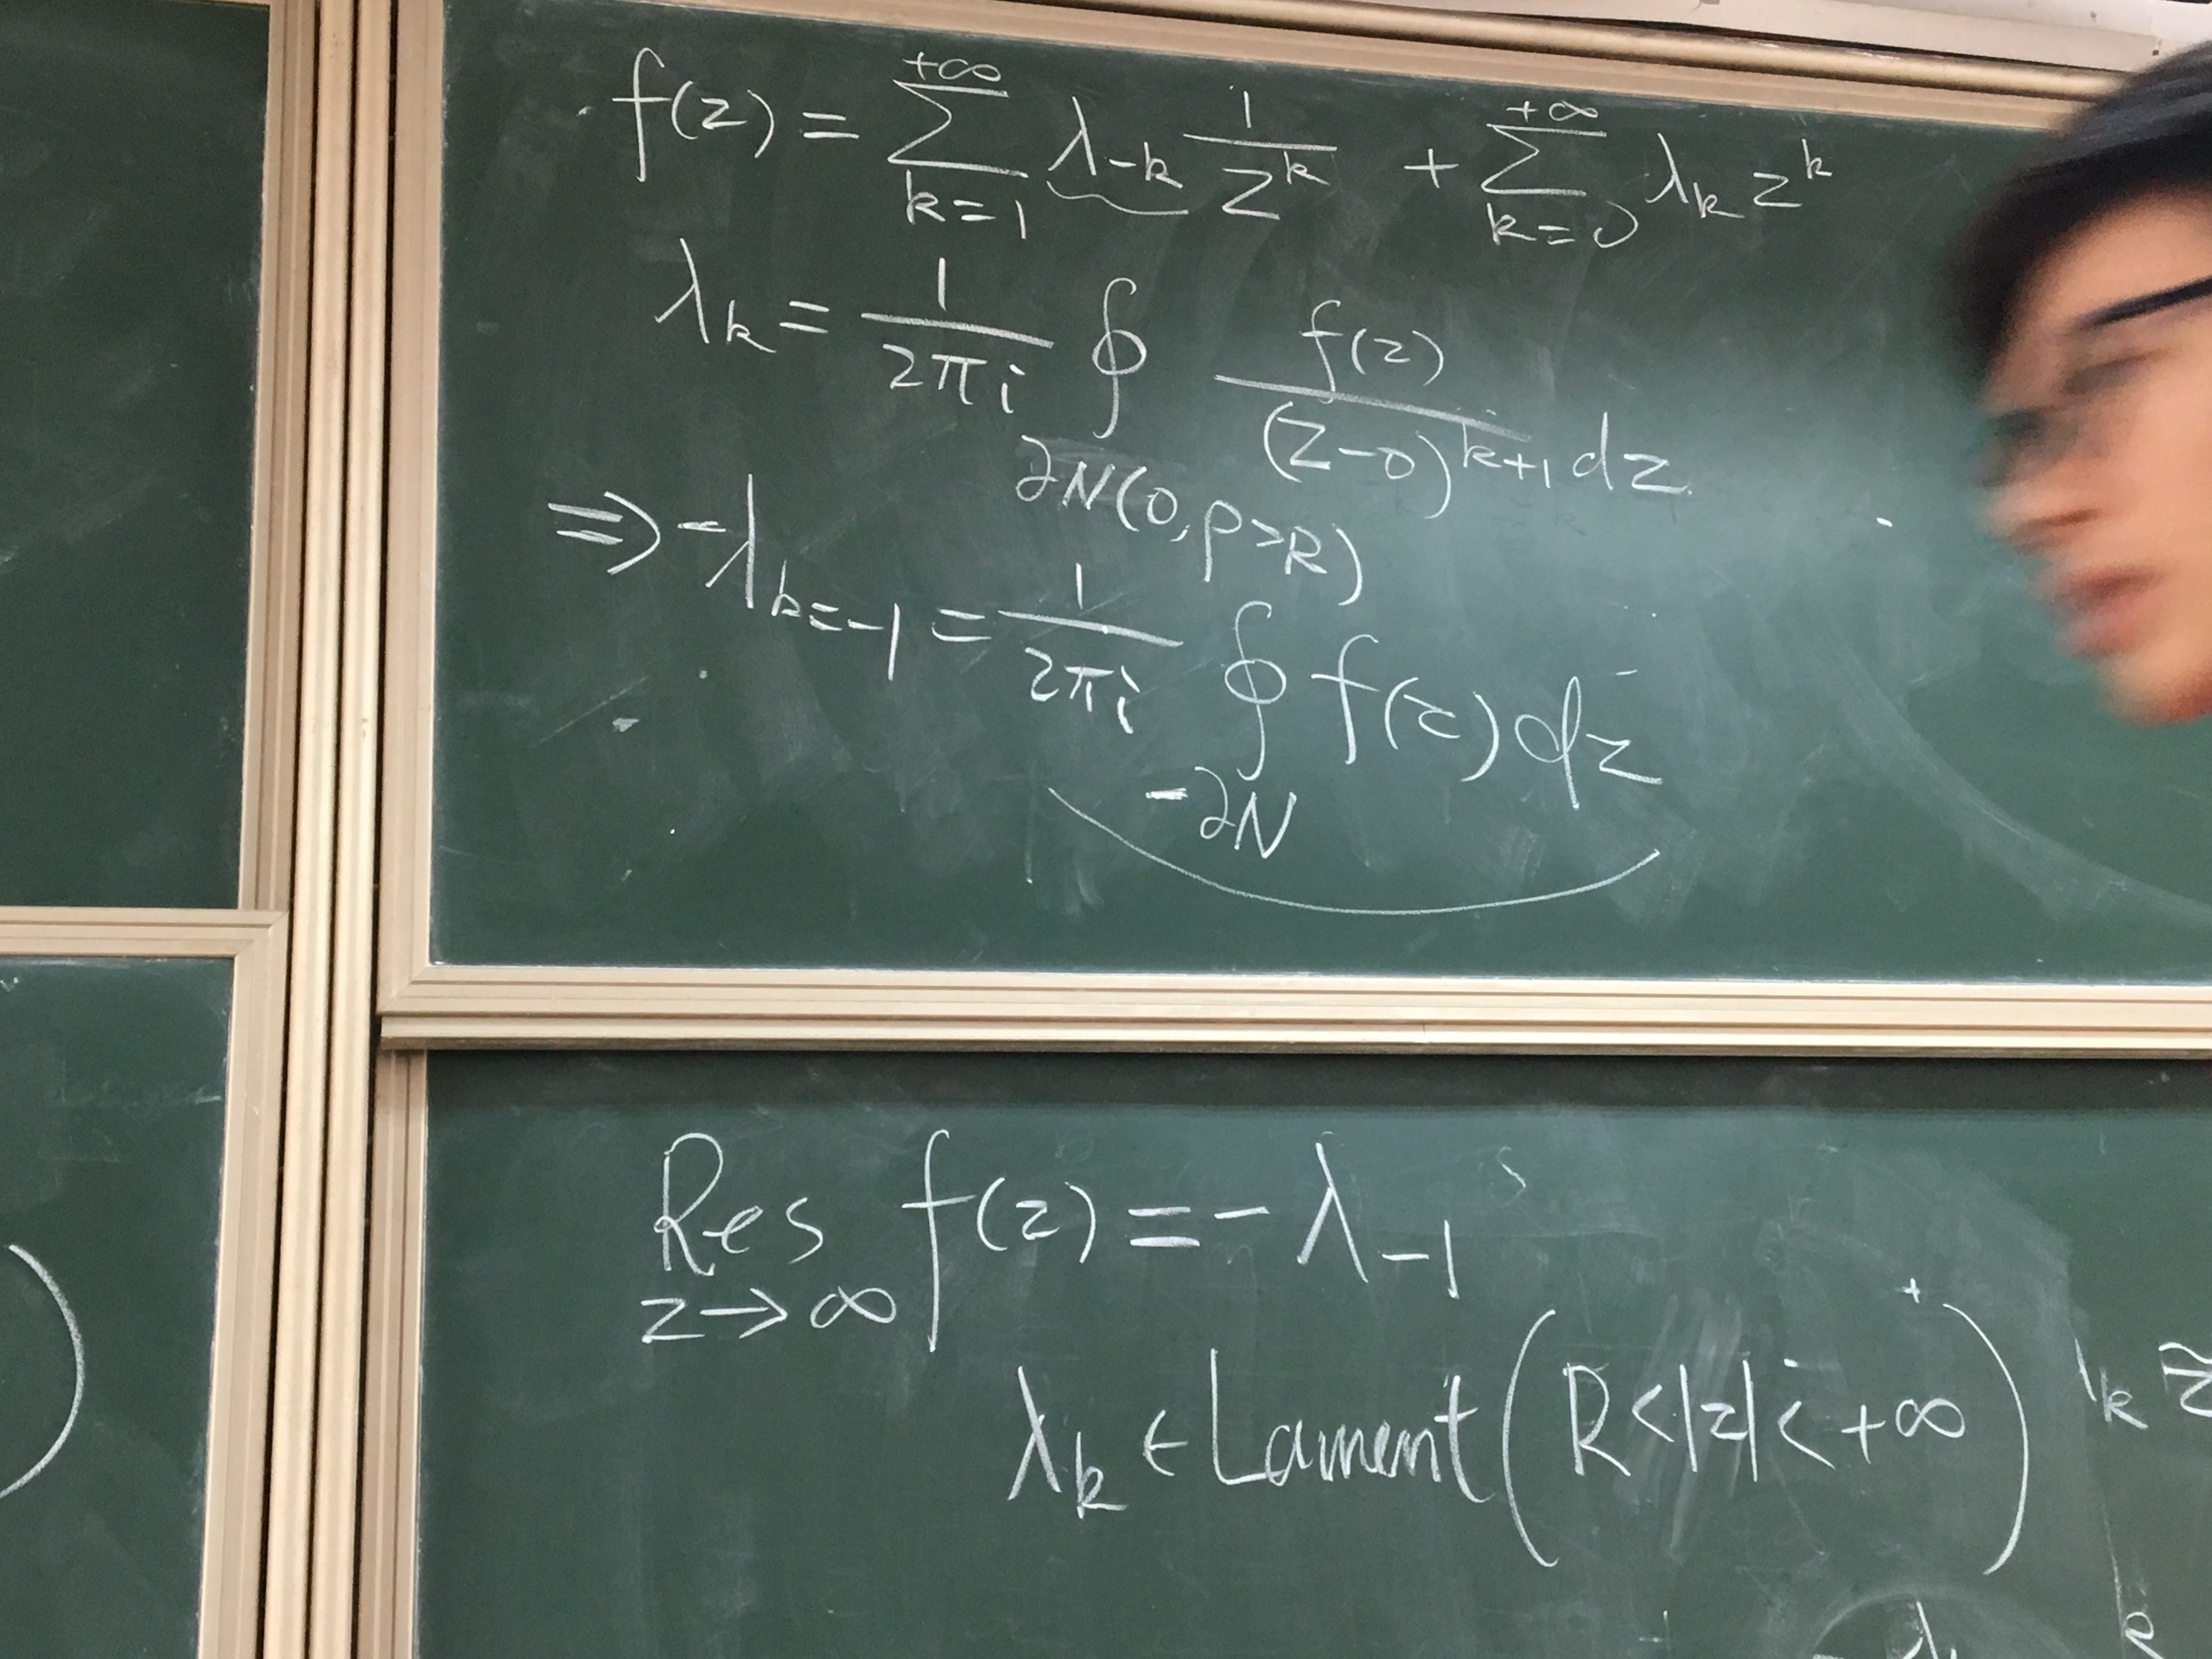 f(z) = \sum_{k=1}^{+\infty} \lambda_{-k} \frac{1}{z^k} + \sum_{k=0}^{+\infty} \lambda_k z^k
\lambda_k = \frac{1}{2\pi i} \oint_{\partial N(0, \rho > R)} \frac{f(z)}{(z-0)^{k+1}} dz
\Rightarrow -\lambda_{k=-1} = \frac{1}{2\pi i} \oint_{-\partial N} f(z) dz
Res_{z \to \infty} f(z) = -\lambda_{-1}
\lambda_k \in Laurent (R < |z| < +\infty)